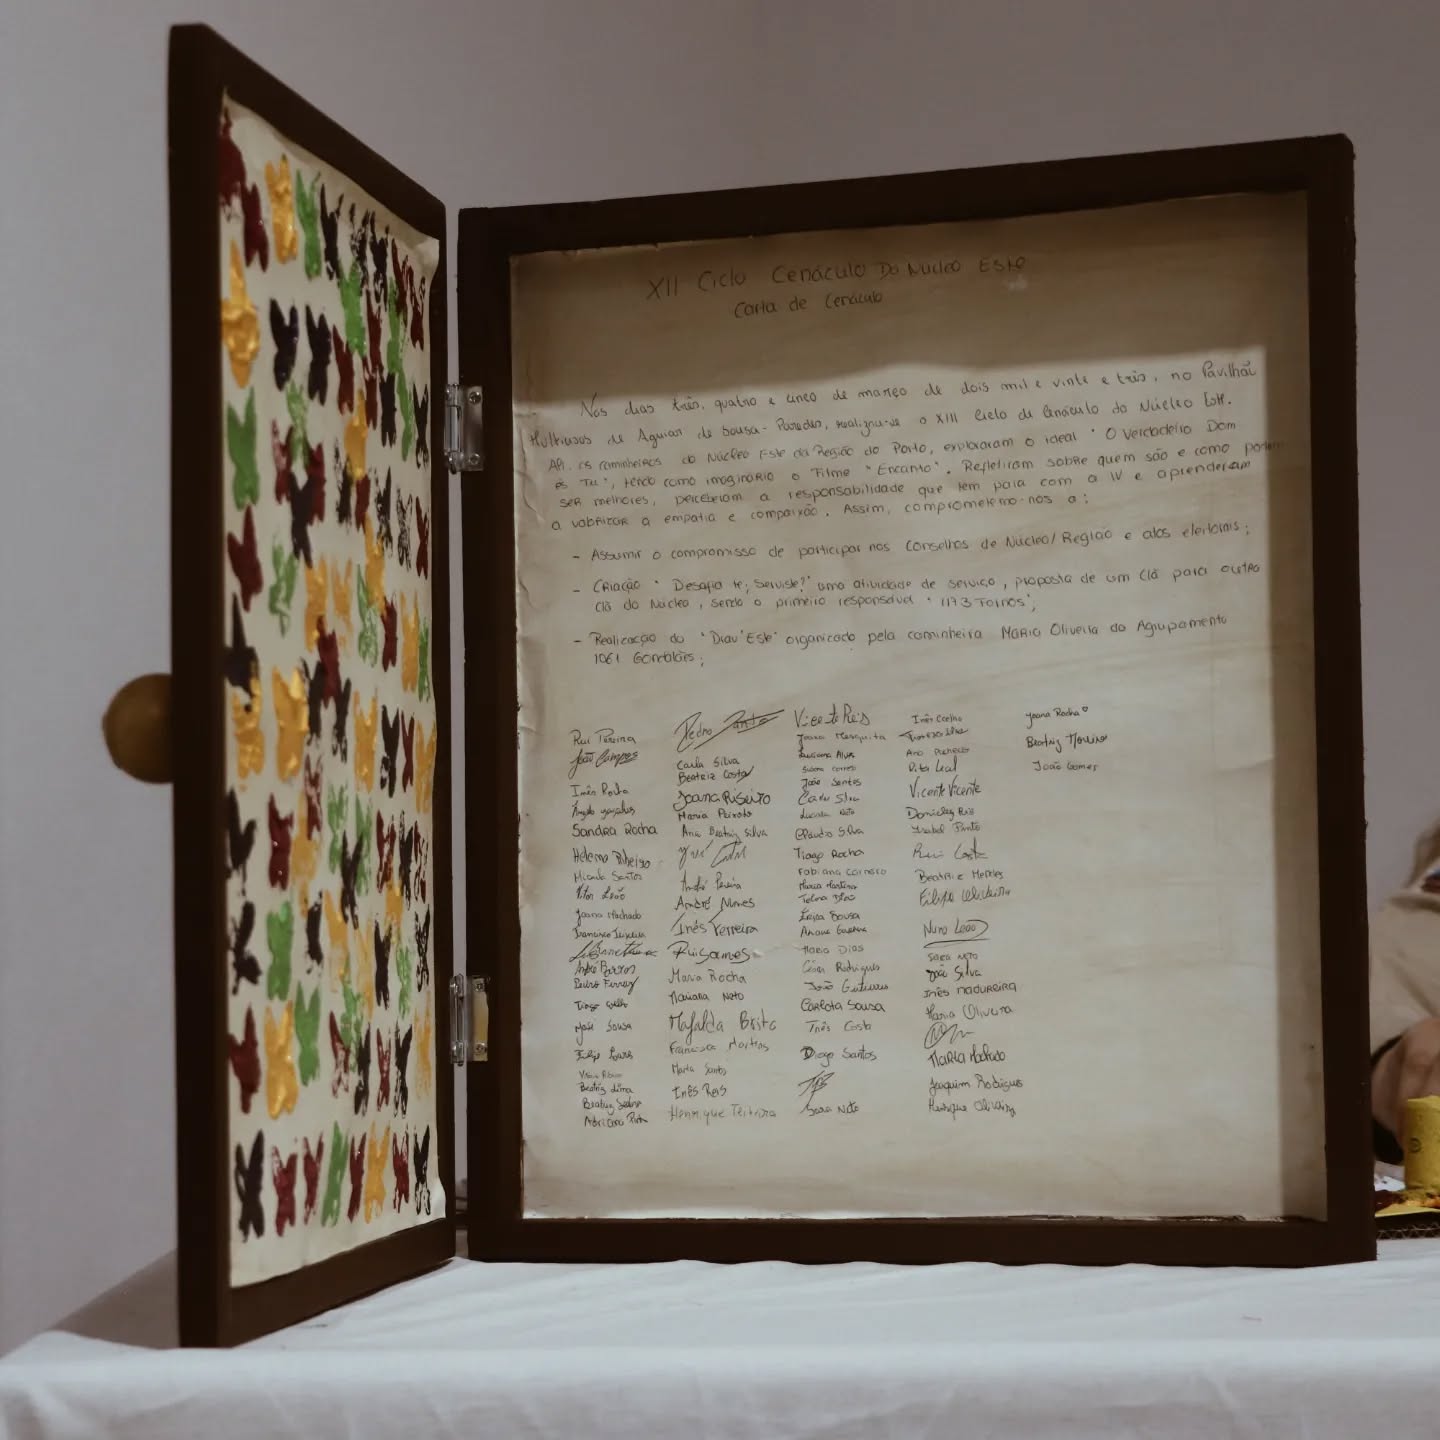 XII Ciclo Cenáculo Do Núcleo Este
Carta de Cenáculo
Nos dias três, quatro e cinco de março de dois mil e vinte e três, no Pavilhão
Multiusos de Aguiar de Sousa - Paredes, realizou-se o XIII Ciclo de Cenáculo do Núcleo Este.
Ali, os caminheiros do Núcleo Este da Região do Porto, exploraram o ideal "O Verdadeiro Dom
és Tu", tendo como imaginário o Filme "Encanto". Refletiram sobre quem são e como podem
ser melhores, perceberam a responsabilidade que têm para com a IV e aprenderam
a valorizar a empatia e compaixão. Assim, comprometemo-nos a:
- Assumir o compromisso de participar nos Conselhos de Núcleo/Região e atos eleitorais;
- Criação "Desafio te; Serviste?" uma atividade de serviço, proposta de um Clã para outro
Clã do Núcleo, sendo o primeiro responsável "1173 Fornos";
- Realização do "Diau'Este" organizado pela caminheira Maria Oliveira do Agrupamento
1061 Gondalães;
Rui Pereira
João Campos
Inês Rocha
Ângelo Gonçalves
Sandra Rocha
Helena Ribeiro
Micaela Santos
Vitor Leão
Joana Machado
Francisco Teixeira
André Barros
Pedro Ferraz
Tiago Coelho
José Sousa
Beatriz Lima
Adriano Pinto
Pedro Santo
Carla Silva
Beatriz Costa
Joana Ribeiro
Maria Peixoto
Ana Beatriz Silva
André Pereira
André Nunes
Inês Ferreira
Rui Gomes
Maria Rocha
Mariana Neto
Mafalda Brito
Francisca Martins
Marta Santos
Inês Reis
Henrique Teixeira
Vicente Reis
Joana Mesquita
Luciana Alves
João Santos
Carlos Silva
Lucinda Neto
Cláudio Silva
Tiago Rocha
Fabiana Carneiro
Maria Martins
Telma Dino
Érica Sousa
Maria Dias
César Rodrigues
João Gutierres
Carlota Sousa
Inês Costa
Diogo Santos
Sara Neto
Inês Coelho
Ana Pacheco
Rita Leal
Vicente Vicente
Daniela Reis
Isabel Pinto
Rui Costa
Beatriz Mendes
Filipa Oliveira
Nuno Leão
Sara Neto
João Silva
Inês Madureira
Maria Oliveira
Maria Machado
Joaquim Rodrigues
Henrique Oliveira
Joana Rocha ♡
Beatriz Moreira
João Gomes